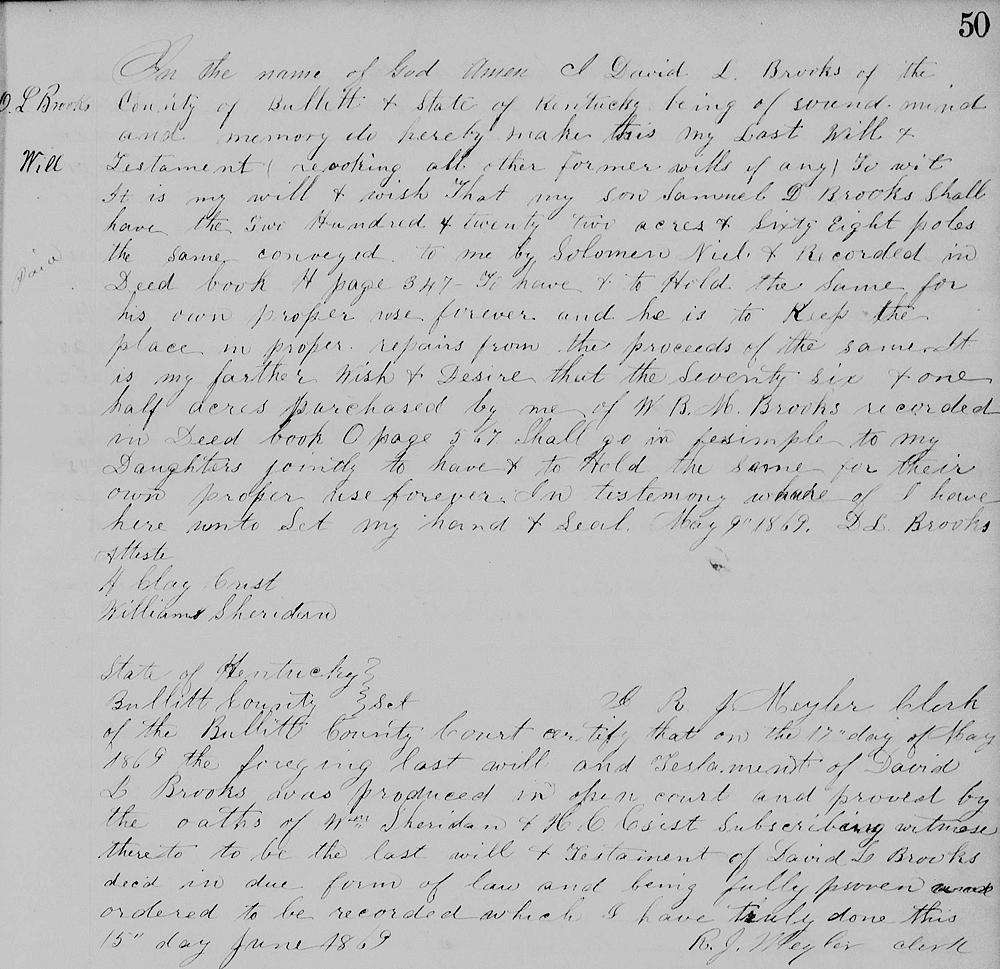 50
In the name of God Amen I David L. Brooks of the
D. L Brooks
County of Bullitt & State of Kentucky being of sound mind
and memory do hereby make this my Last Will &
Will
Testament ( revoking all other former wills if any) To wit
It is my will & wish That my son Samuel D Brooks Shall
have the Two Hundred & twenty two acres & Sixty Eight poles
the same conveyed to me by Solomon Niel & Recorded in
Paid
Deed book H page 347- To have & to Hold the same for
his own proper use forever and he is to Keep the
place in proper repairs from the proceeds of the same. It
is my farther Wish & Desire that the Seventy six & one
half acres purchased by me of W B. M. Brooks recorded
in Deed book O page 567 Shall go in fesimple to my
Daughters jointly to have & to Hold the same for their
own proper use forever. In testemony whare of I have
here unto Set my hand & Seal. May 9" 1869. D L. Brooks
Atteste
H Clay Crist
William Sheridan
State of Kentucky }
Bullitt County } Sct I R. J. Meyler Clerk
of the Bullitt County Court certify that on the 17" day of May
1869 the foreging last will and Testament of David
L Brooks was produced in open court and proved by
the oaths of Wm Sheridan & H. C. Crist Subscribing witness
thereto to be the last will & Testament of David L Brooks
dec'd in due form of law and being fully proven and
ordered to be recorded which I have truly done this
15" day June 1869 R. J. Meyler clerk